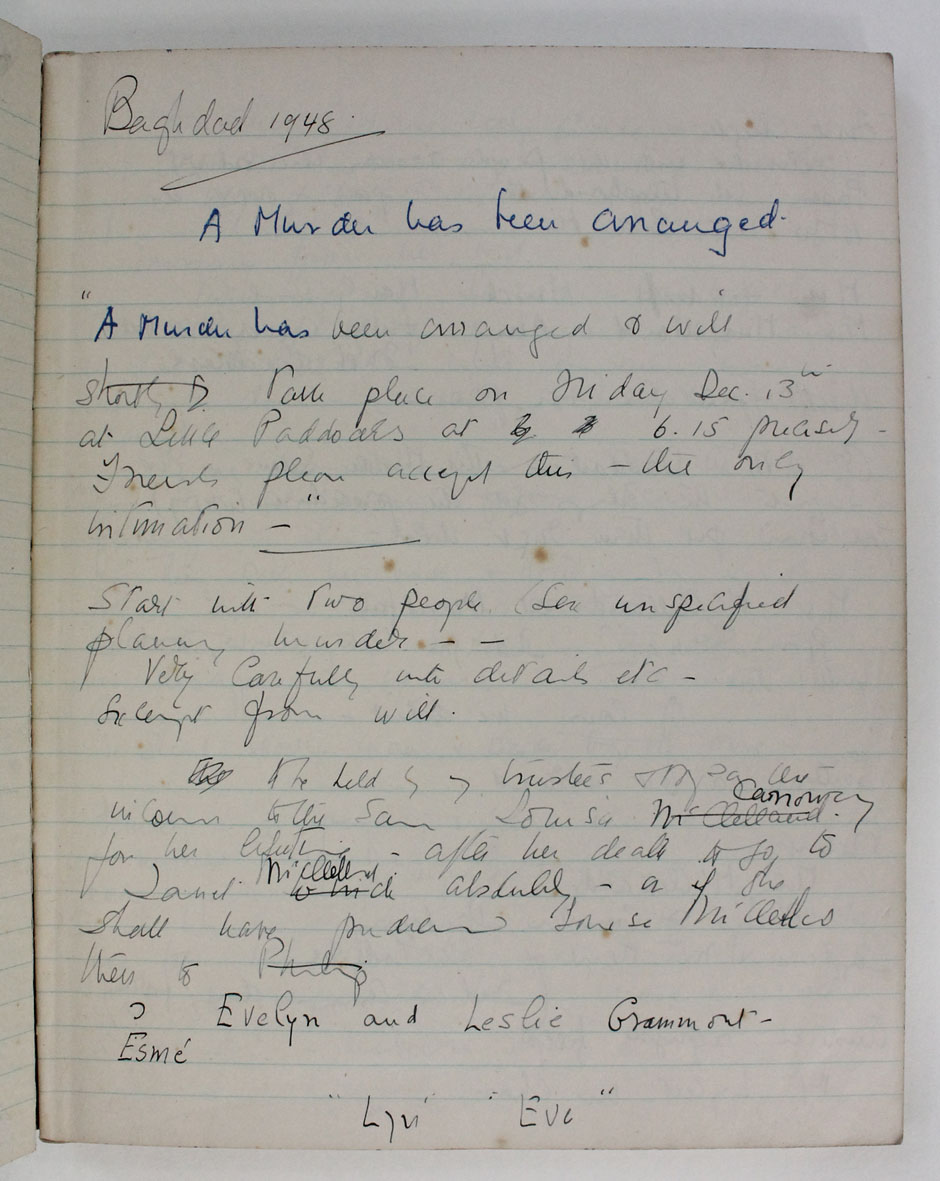 Baghdad 1948.
A Murder has been arranged.
"A Murder has been arranged & will
shortly take place on Friday Dec. 13th
at Little Paddocks at 6.15 precisely -
Friends please accept this - the only
intimation - "
Start with two people (Sex unspecified
planning murder - -
Very carefully with details etc -
Excerpt from will.
To be held by my trustees to pay the
income to the said Louisa McClelland. Carroway
for her lifetime - after her death to go to
Janet McClelland absolutely - or if she
shall have predeceased Louise
then to Philip
? Evelyn and Leslie Grammont -
Esmé
" Lyn " Eve "